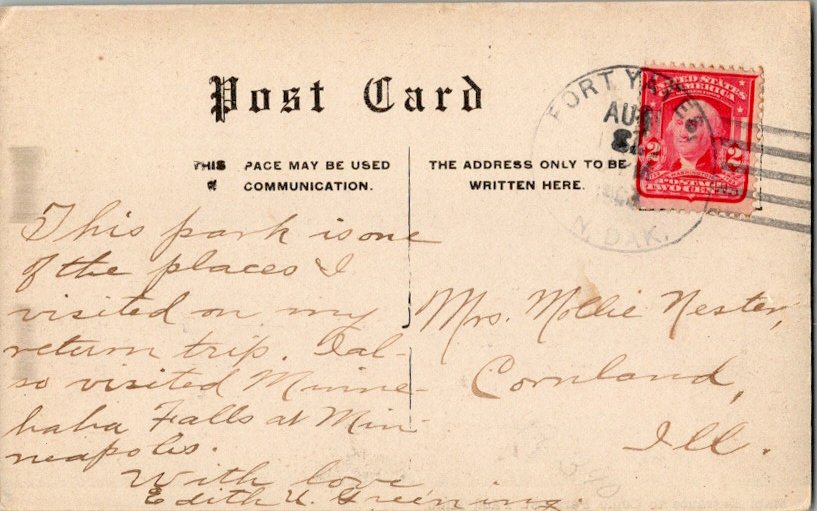 Post Card
THIS PACE MAY BE USED
COMMUNICATION.
THE ADDRESS ONLY TO BE
WRITTEN HERE.
FORT YATES
AUG
N. DAK.
UNITED STATES
OF AMERICA
2 2
POSTAGE
TWO CENTS
This park is one
of the places I
visited on my
return trip. I al-
so visited Minne-
haha Falls at Min
neapolis.
With love
Edith U. Greening.
Mrs. Mollie Nester,
Cornland,
Ill.